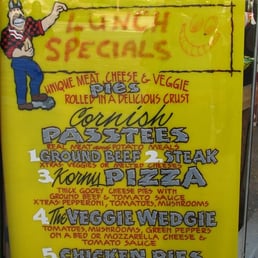 LUNCH
SPECIALS
UNIQUE MEAT, CHEESE & VEGGIE
PIES
ROLLED IN A DELICIOUS CRUST
Cornish
PASSTEES
REAL MEAT AND POTATO MEALS
1. GROUND BEEF 2. STEAK
XTRAS VEGGIES OR MELTED CHEESES
3. Kornus PIZZA
THICK GOOEY CHEESE PIES WITH
GROUND BEEF & TOMATO SAUCE
XTRAS PEPPERONI, TOMATOES, MUSHROOMS
4. The VEGGIE WEDGIE
TOMATOES, MUSHROOMS, GREEN PEPPERS
ON A BED OR MOZZARELLA CHEESE &
TOMATO SAUCE
5. CHICKEN PIES